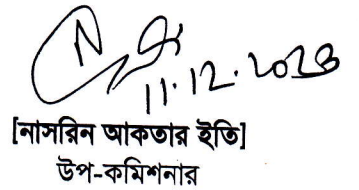 11.12.2023
[নাসরিন আকতার ইতি]
উপ-কমিশনার